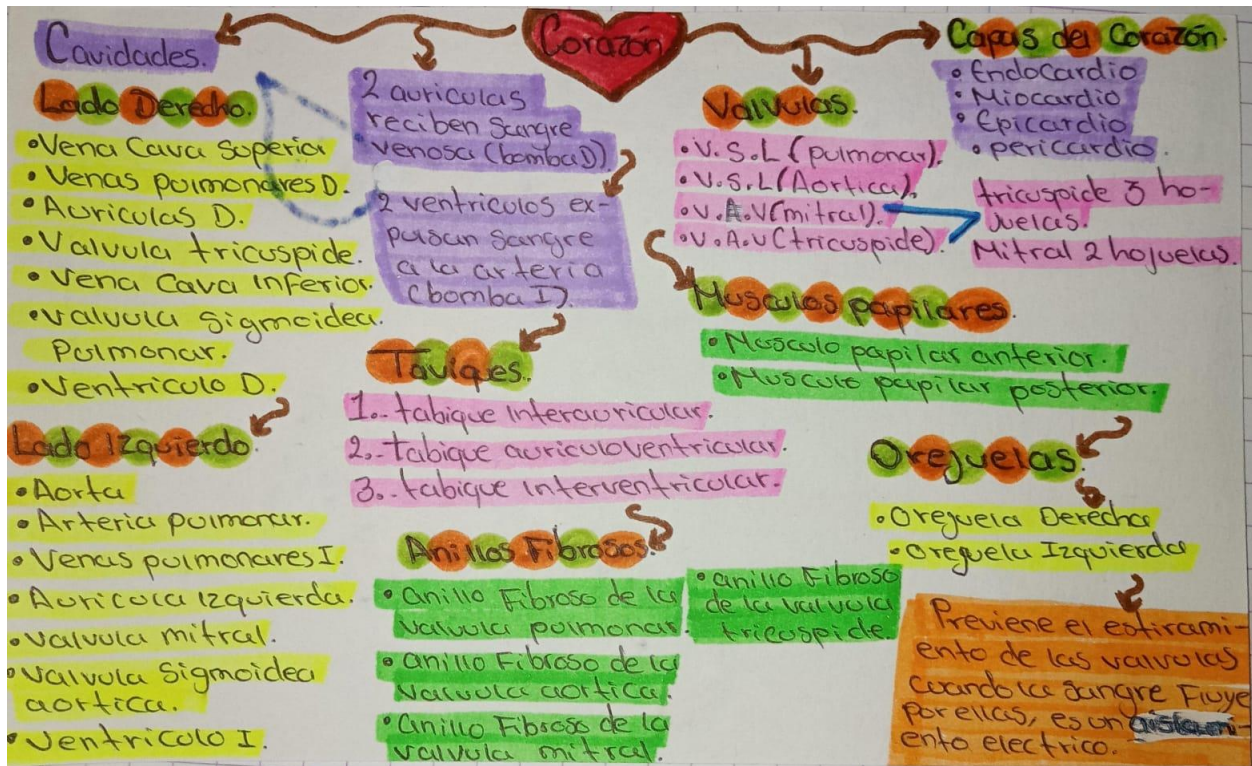 Corazón
Cavidades.
Lado Derecho.
• Vena Cava Superior
• Venas pulmonares D.
• Auriculas D.
• Valvula tricuspide.
• Vena Cava Inferior.
• valvula sigmoidea
Pulmonar.
• Ventriculo D.
Lado Izquierdo.
• Aorta
• Arteria pulmonar.
• Venas pulmonares I.
• Auricula izquierda.
• valvula mitral.
• valvula Sigmoidea
aortica.
• Ventriculo I.
2 auriculas
reciben Sangre
venosa (bomba D)
2 ventriculos ex-
pulsan Sangre
a la arteria
(bomba I).
Taviques.
1.- tabique Interauricular.
2.- tabique auriculoventricular.
3.- tabique Interventricular.
Anillos Fibrosos.
• anillo Fibroso de la
valvula pulmonar.
• anillo Fibroso de la
Valvula aortica.
• anillo Fibroso de la
valvula mitral.
• anillo Fibroso
de la valvula
tricuspide.
Valvulas.
• V.S.L (pulmonar).
• V.S.L (Aortica).
• V.A.V (mitral).
• V.A.V (tricuspide)
tricuspide 3 ho-
juelas.
Mitral 2 hojuelas.
Musculos papilares.
• Musculo papilar anterior.
• Musculo papilar posterior.
Capas del Corazón.
• Endocardio
• Miocardio
• Epicardio
• pericardio.
Orejuelas.
• Orejuela Derecha
• Orejuela Izquierda
Previene el estirami-
ento de las valvulas
cuando la sangre Fluye
por ellas, es un aislami-
ento electrico.